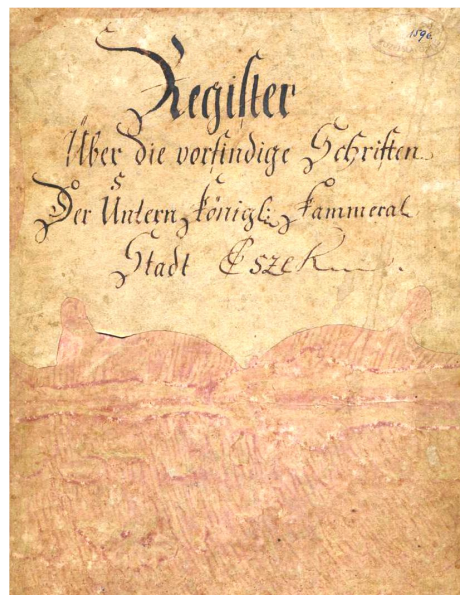 1596.
Register
Über die vorfindige Schriften
Der Untern königl: Kammeral
Stadt Eszek